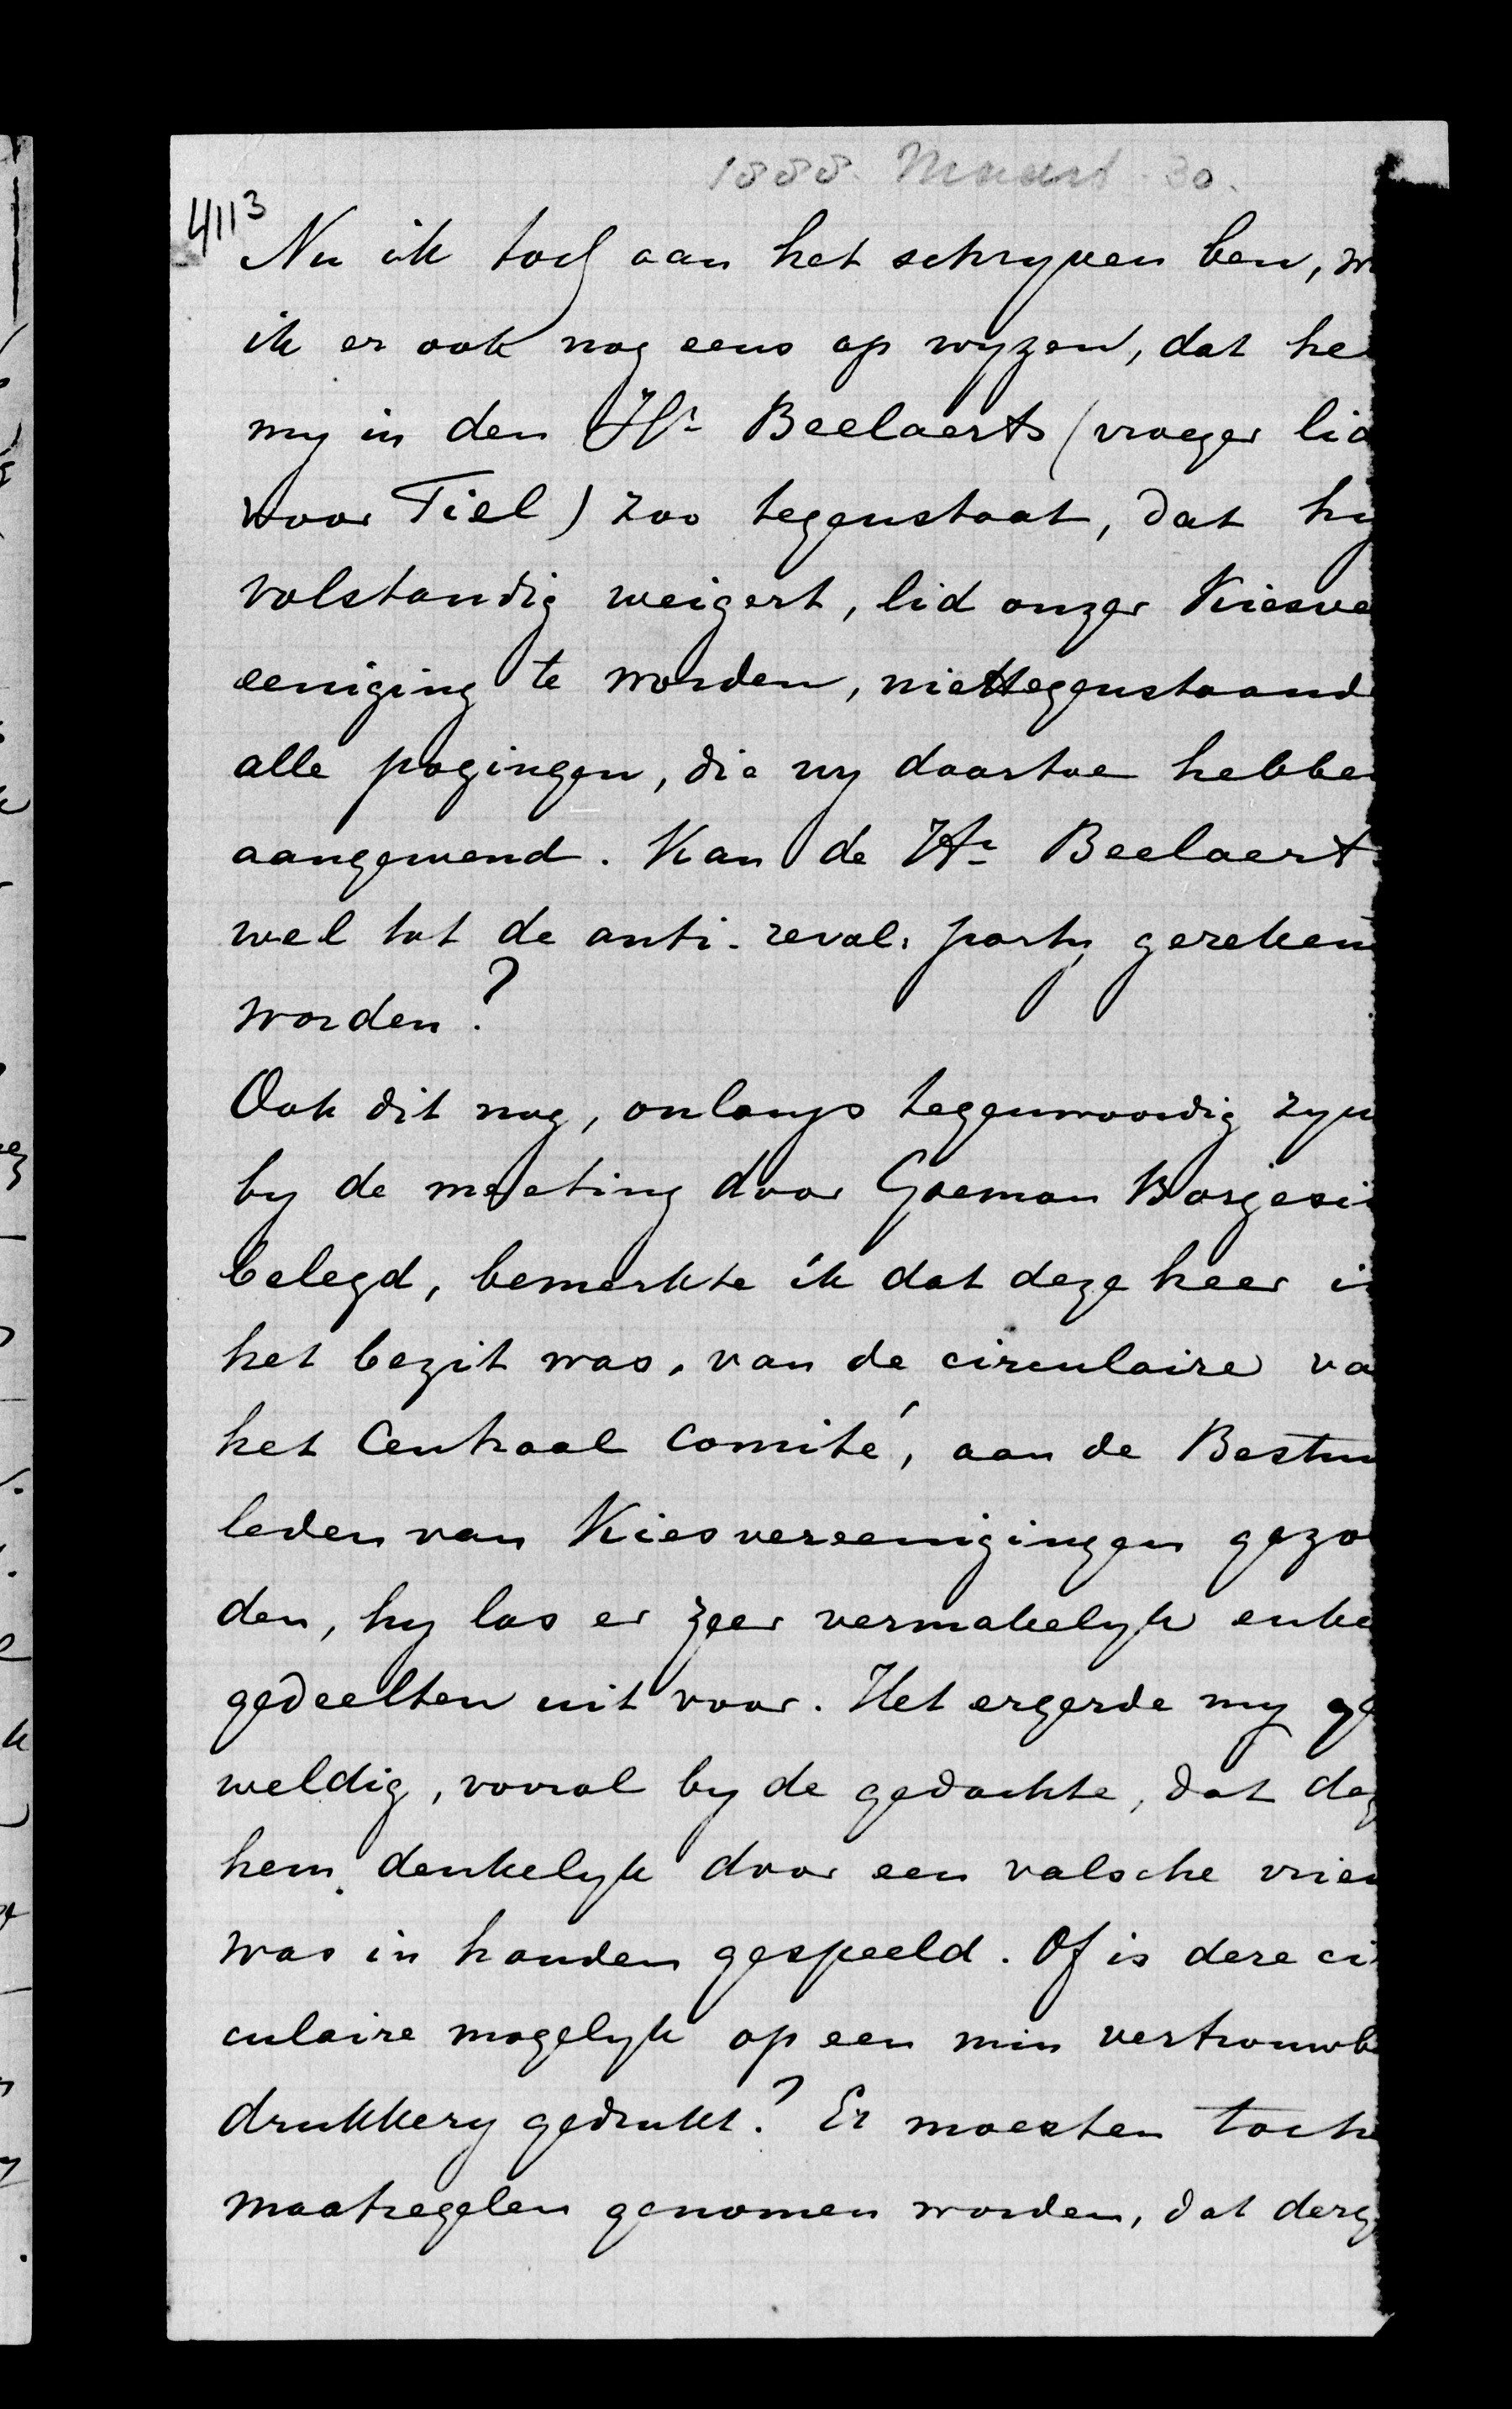 1888. Maart 30.
4113
Nu ik toch aan het schrijven ben, w
ik er ook nog eens op wijzen, dat he
mij in den Hr Beelaerts (vroeger lid
voor Tiel) zoo tegenstaat, dat hij
volstandig weigert, lid onzer Kiesve
eeniging te worden, niettegenstaand
alle pogingen, die wij daartoe hebbe
aangewend. Kan de Hr Beelaerts
wel tot de anti-revol: partij gereken
worden?
Ook dit nog, onlangs tegenwoordig zijn
bij de meeting door Goeman Borgesi
belegd, bemerkte ik dat deze heer i
het bezit was, van de circulaire va
het Centraal Comité, aan de Bestuu
leden van Kiesvereenigingen gezo
den, hij las er zeer vermakelijk enke
gedeelten uit voor. Het ergerde mij ge
weldig, vooral bij de gedachte, dat dez
hem denkelijk door een valsche vrien
was in handen gespeeld. Of is deze ci
culaire mogelijk op een min vertrouwb
drukkerij gedrukt? Er moesten toch
maatregelen genomen worden, dat derg